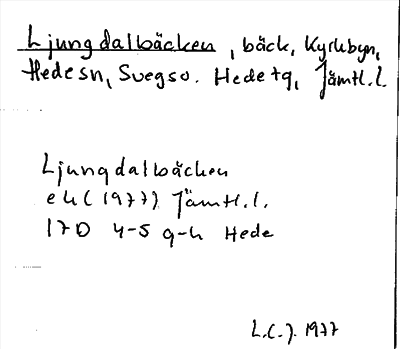 Ljungdalbäcken, bäck, Kyrkbyn,
Hede sn, Svegs o. Hede tg, Jämtl. l.
Ljungdalbäcken
ek (1977) Jämtl. l.
17D 4-5 g-h Hede
L.C.J. 1977